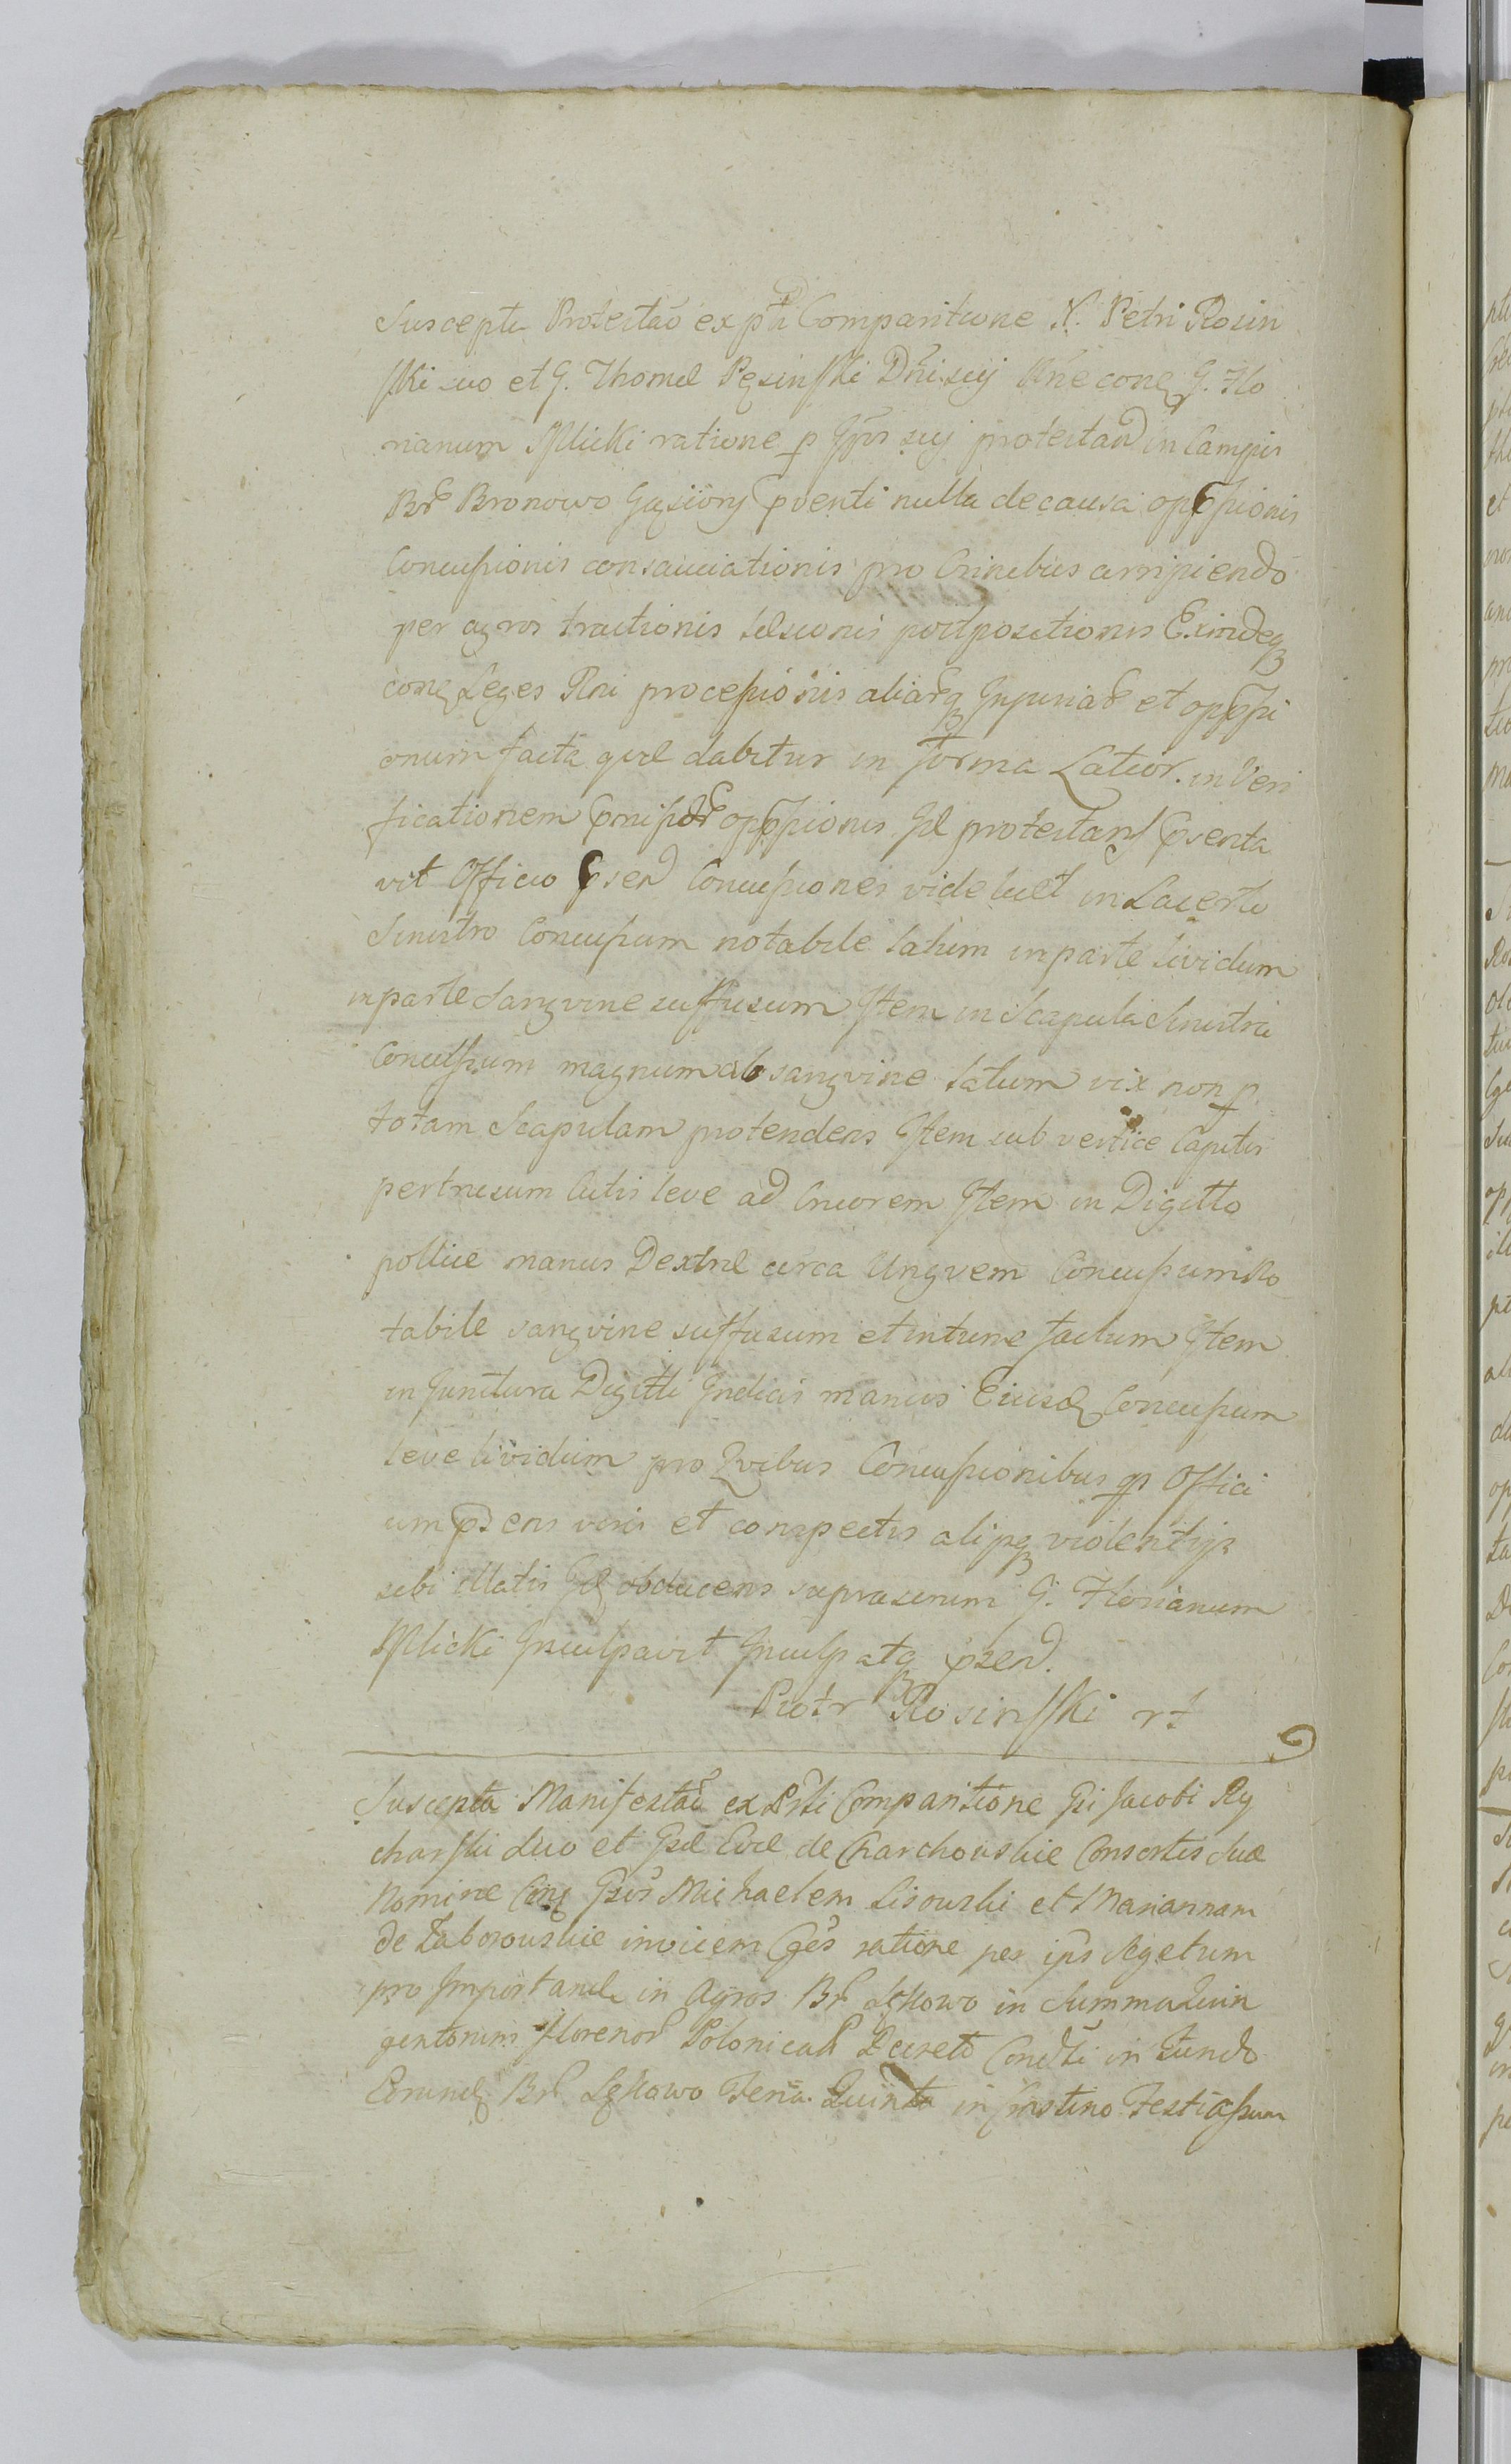 Suscepta Protestao ex psti Comparitione N. Petri Rosin
ski suo et G. Thomæ Pęsinski Dni sui Nne conq G. Flo
rianum Mlicki ratione p Ipm sey protestand in Campis
Br Bronowo Gąsiory pventi nulla de causa oppssionis
Concussionis consauciationis pro Crinibus arripiendo
per agros tractionis telsionis postpositionis Exindeq
conq Leges Rni processionis aliarq Injuriar et oppssi
onum facta quæ dabitur in forma Latior. in Veri
ficationem pmissor oppssionis Id protestans psenta
vit Officio psen Concussiones videlicet in Lacerto
Sinistro Concussum notabile latum in parte lividum
in parte Sangvine suffusum Item in Scapula Sinistra
Concussum magnum ab sangvine latum vix non p
totam Scapulam protendens Item sub vertice Capitis
pertusum Cutis leve ad Cruorem Item in Digitto
pollice manus Dextræ circa Ungvem Concussum No
tabile sangvine suffusum et intume factum Item
in Junctura Digitti Indicis manus Eiusd Concussum
leve lividum pro Qvibus Concussionibus p Offici
um psens visis et conspectis alijsq violentijs
sibi illatis Id obducens suprascrium G. Florianum
Mlicki Inculpavit Inculpatq psen.
Piotr Rosinski rt
Suscepta Manifestao ex Psti Comparitione Gsi Jacobi Ry
charski suo et Gsæ Evæ de Charchowskie Consortis Suæ
Nomine Conq Gsos Michaelem Lisowski et Mariannam
de Taborowskie invicem Cges ratione per ipos Segetum
pro Importand in Agros Br Lękowo in Summa Quin
gentorum florenor Polonical Decreto Condsti in Fundo
Eorund Br Lękowo Feria Quinta in Crastino Festi Assum